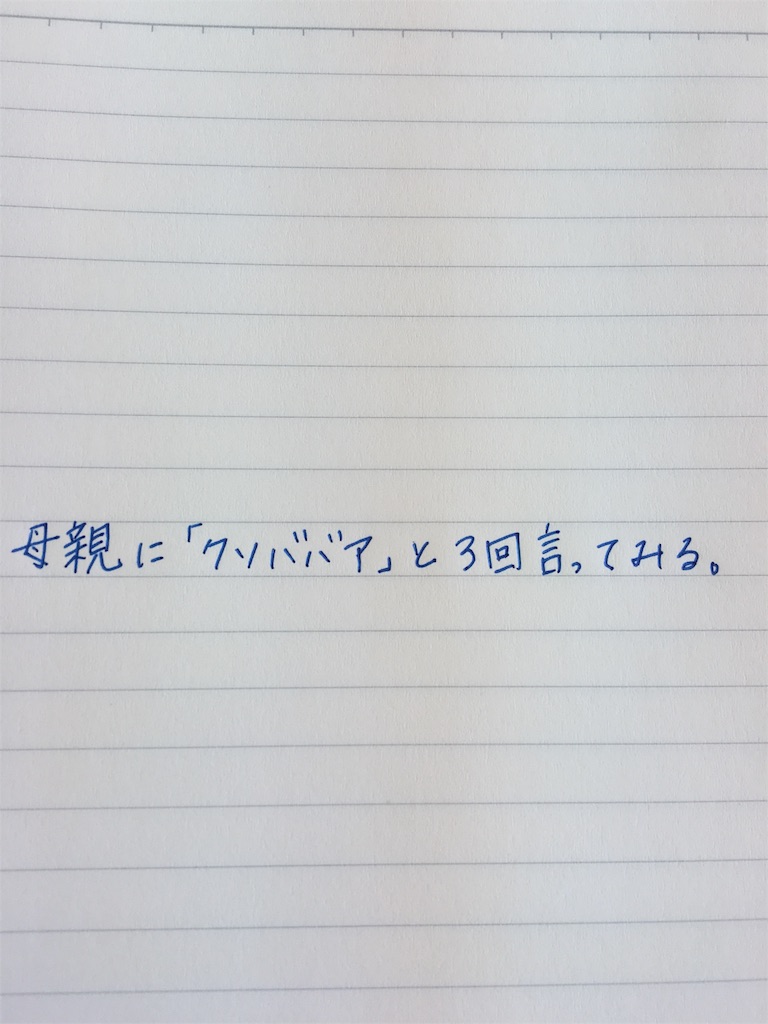 母親に「クソババア」と3回言ってみる。